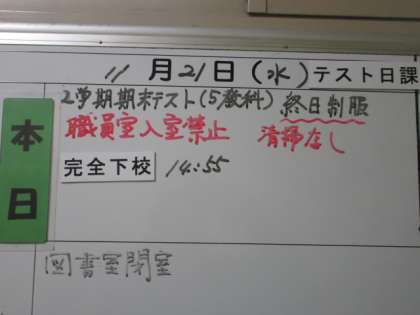 11月21日(水)テスト日課
本日
2学期期末テスト(5教科) 終日制服
職員室入室禁止 清掃なし
完全下校 14:55
図書室閉室